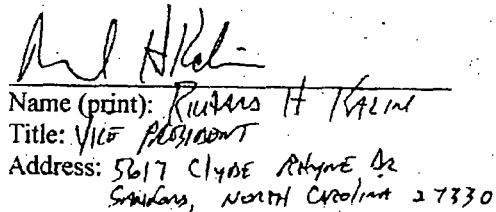 Name (print): RICHARD H KALIN
Title: VICE PRESIDENT
Address: 5617 Clyde Rhyne Dr
Sanford, North Carolina 27330